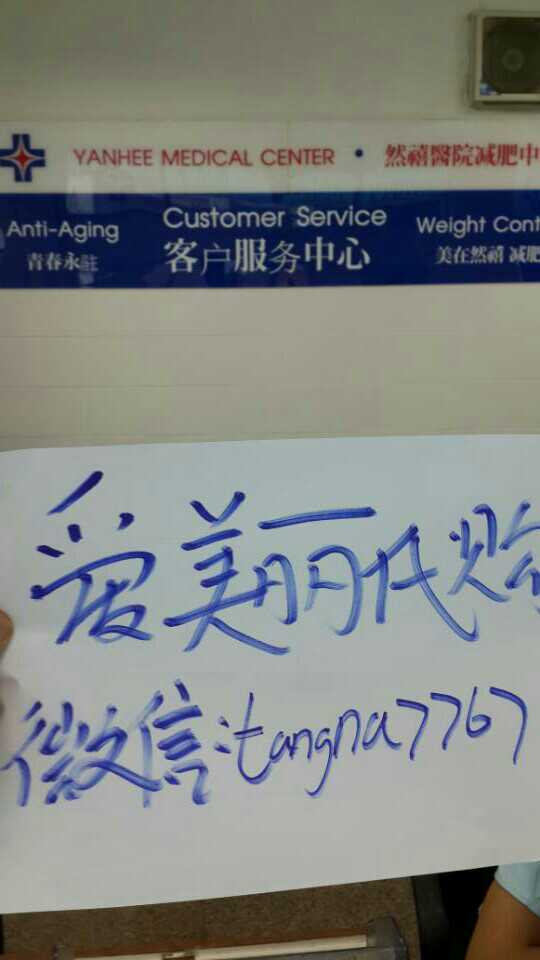 YANHEE MEDICAL CENTER • 然禧醫院减肥中
Anti-Aging Customer Service Weight Cont
青春永驻 客户服务中心 美在然禧 减肥
爱美丽代购
微信:tangna7767